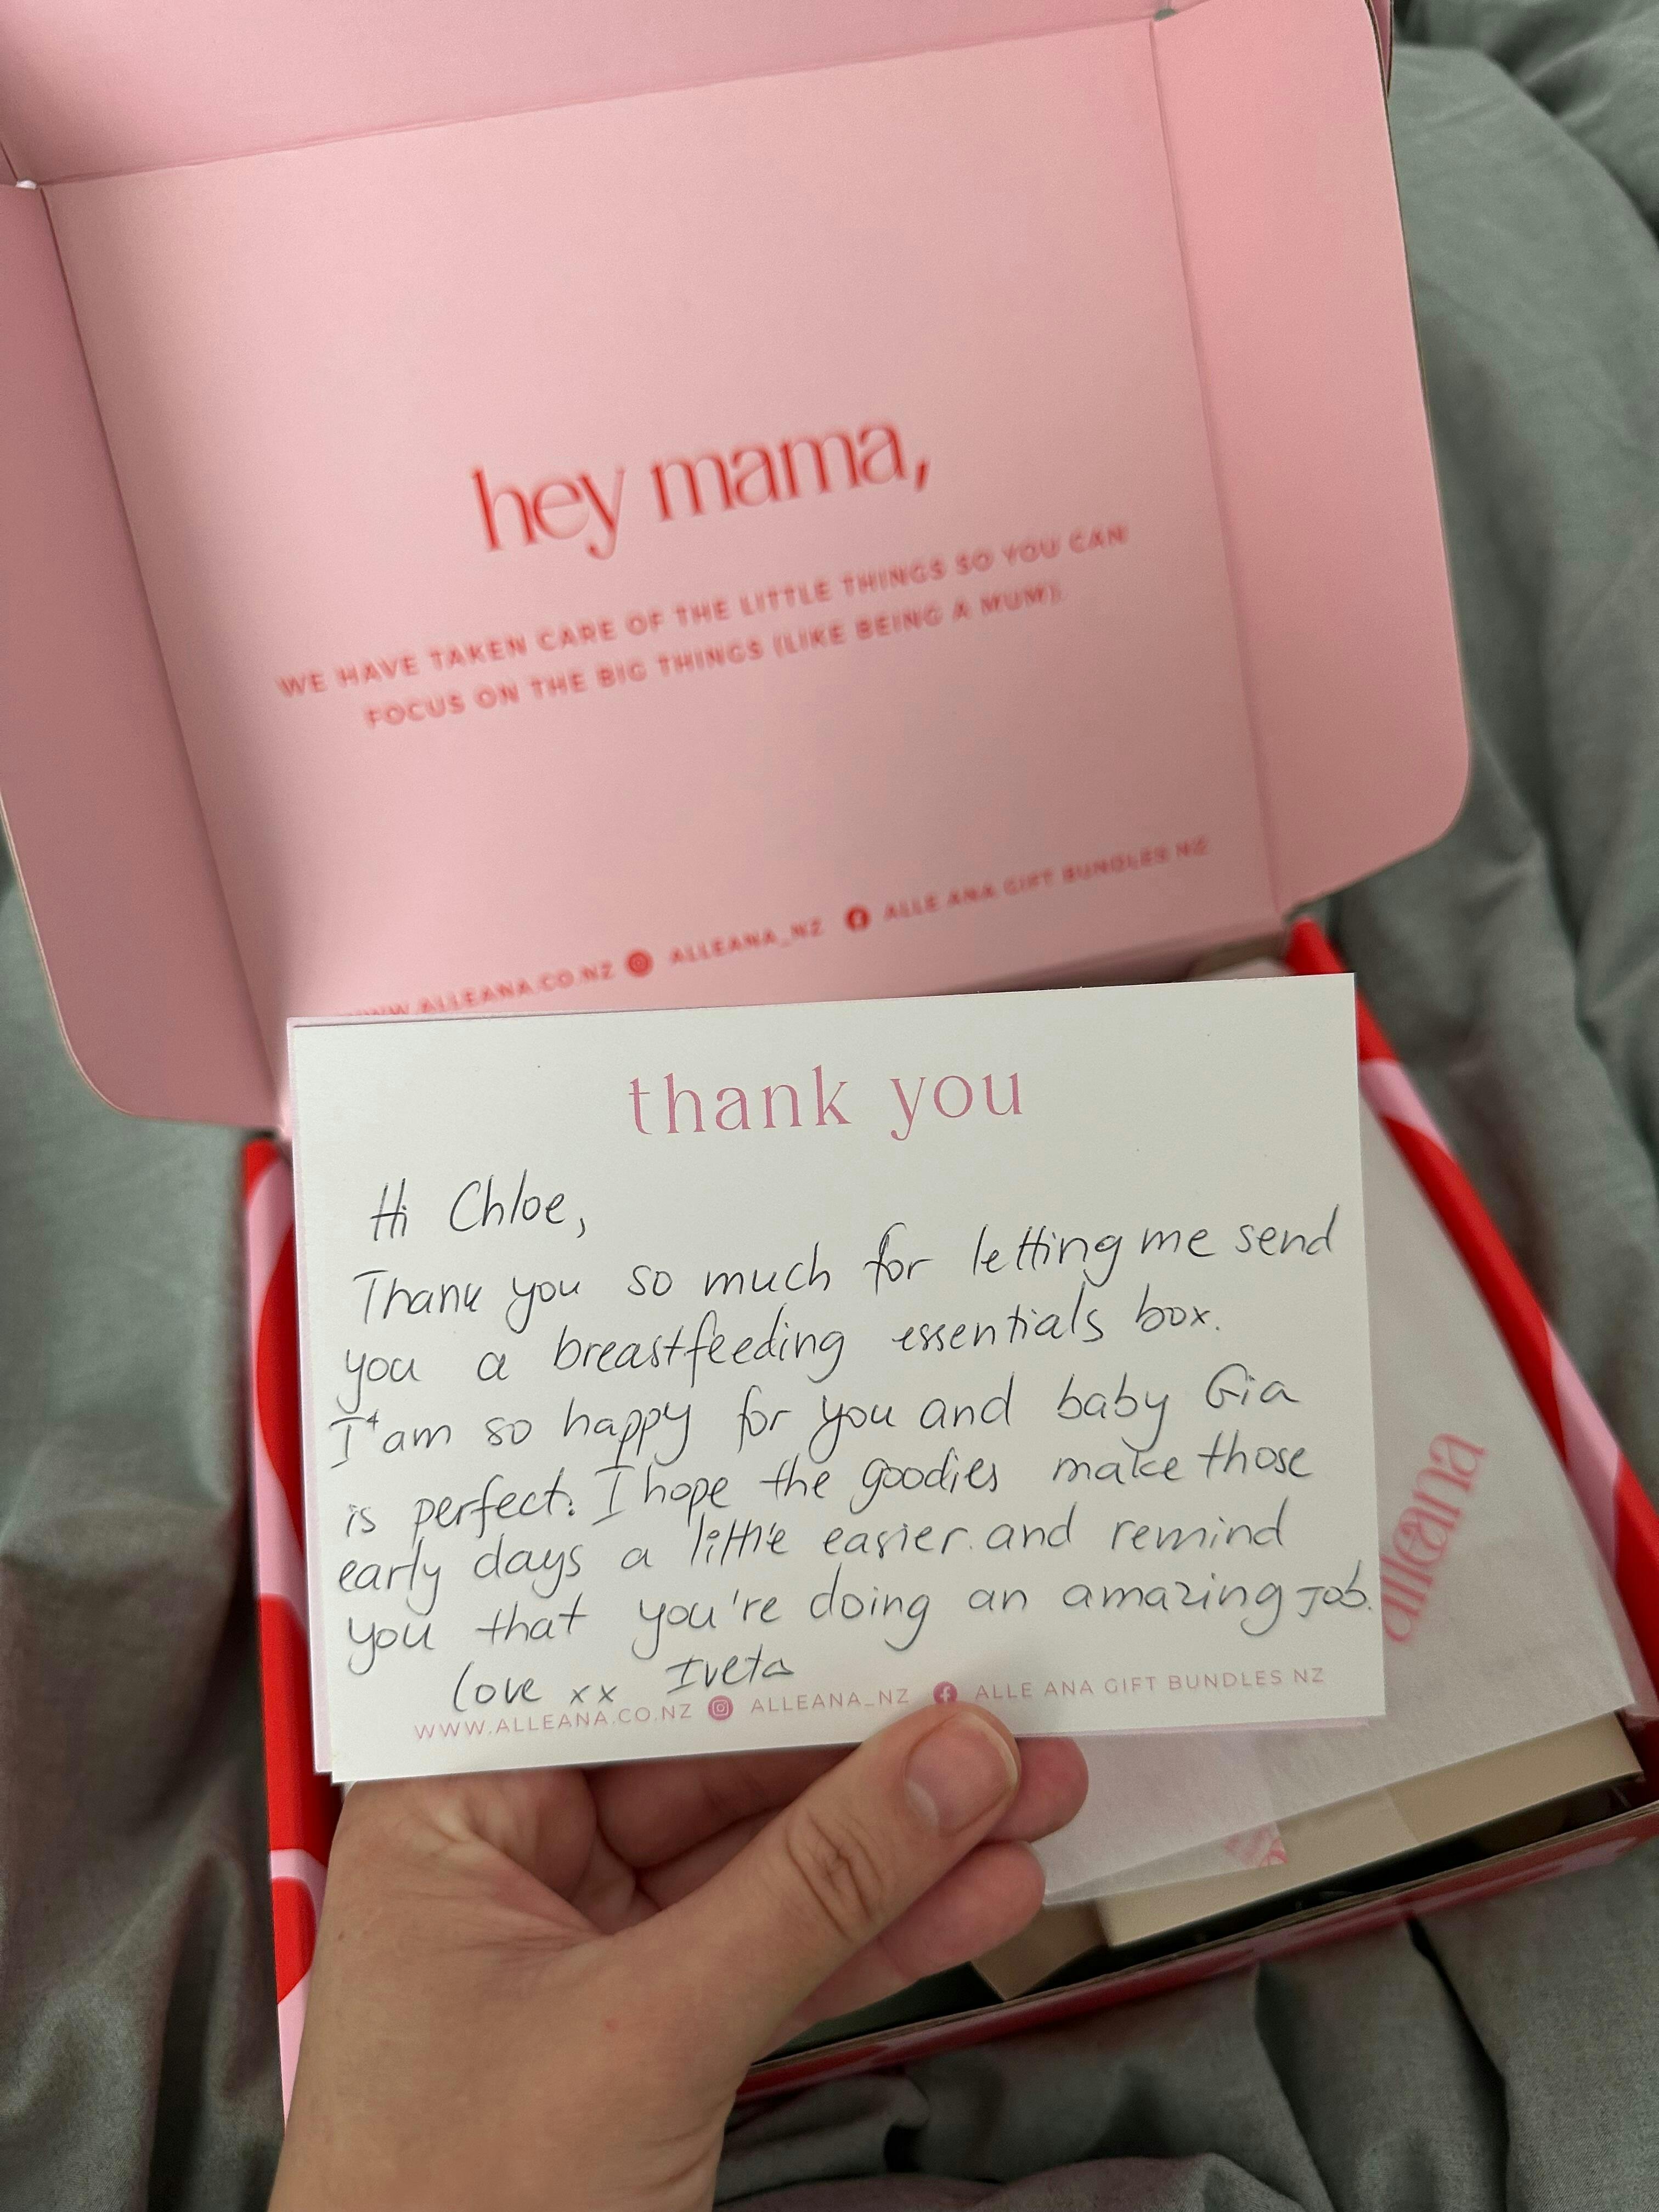 hey mama,
WE HAVE TAKEN CARE OF THE LITTLE THINGS SO YOU CAN
FOCUS ON THE BIG THINGS (LIKE BEING A MUM).
WWW.ALLEANA.CO.NZ ALLEANA_NZ ALLE ANA GIFT BUNDLES NZ
thank you
Hi Chloe,
Thank you so much for letting me send
you a breastfeeding essentials box.
I am so happy for you and baby Gia
is perfect. I hope the goodies make those
early days a little easier and remind
you that you're doing an amazing job.
Love xx Iveta
WWW.ALLEANA.CO.NZ ALLEANA_NZ ALLE ANA GIFT BUNDLES NZ
alleana